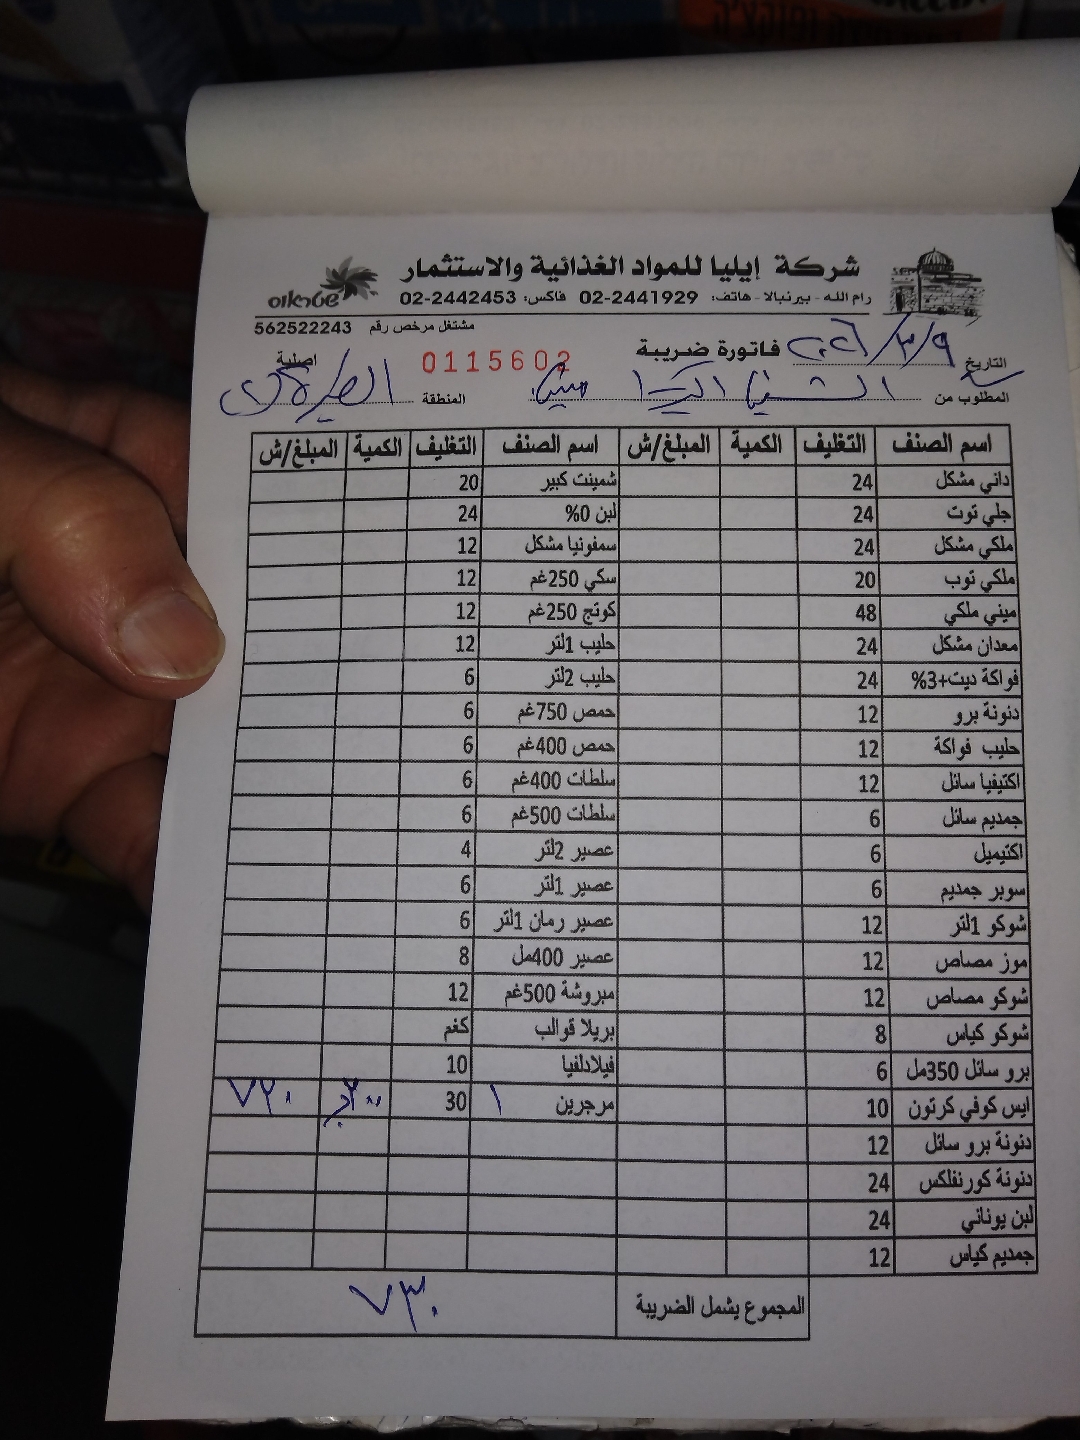 شركة إيليا للمواد الغذائية والاستثمار
שטראוס
رام الله - بيرنبالا - هاتف: 02-2441929 فاكس: 02-2442453
مشتغل مرخص رقم 562522243
التاريخ ٢٠٢٦/٣/٩ فاتورة ضريبة 0115602 اصلية
المطلوب من المنطقة
اسم الصنف التغليف الكمية المبلغ/ش اسم الصنف التغليف الكمية المبلغ/ش
داني مشكل 24 شمينت كبير 20
جلي توت 24 لبن 0% 24
ملكي مشكل 24 سمفونيا مشكل 12
ملكي توب 20 سكي 250غم 12
ميني ملكي 48 كوتج 250غم 12
معدان مشكل 24 حليب 1لتر 12
فواكة ديت+3% 24 حليب 2لتر 6
دنونة برو 12 حمص 750غم 6
حليب فواكة 12 حمص 400غم 6
اكتيفيا سائل 12 سلطات 400غم 6
جمديم سائل 6 سلطات 500غم 6
اكتيميل 6 عصير 2لتر 4
سوبر جمديم 6 عصير 1لتر 6
شوكو 1لتر 12 عصير رمان 1لتر 6
موز مصاص 12 عصير 400مل 8
شوكو مصاص 12 مبروشة 500غم 12
شوكو كياس 8 بريلا قوالب كغم
برو سائل 350مل 6 فيلادلفيا 10
ايس كوفي كرتون 10 مرجرين ١ 30 ٧٢٠
دنونة برو سائل 12
دنونة كورنفلكس 24
لبن يوناني 24
جمديم كياس 12
المجموع يشمل الضريبة ٧٣٠